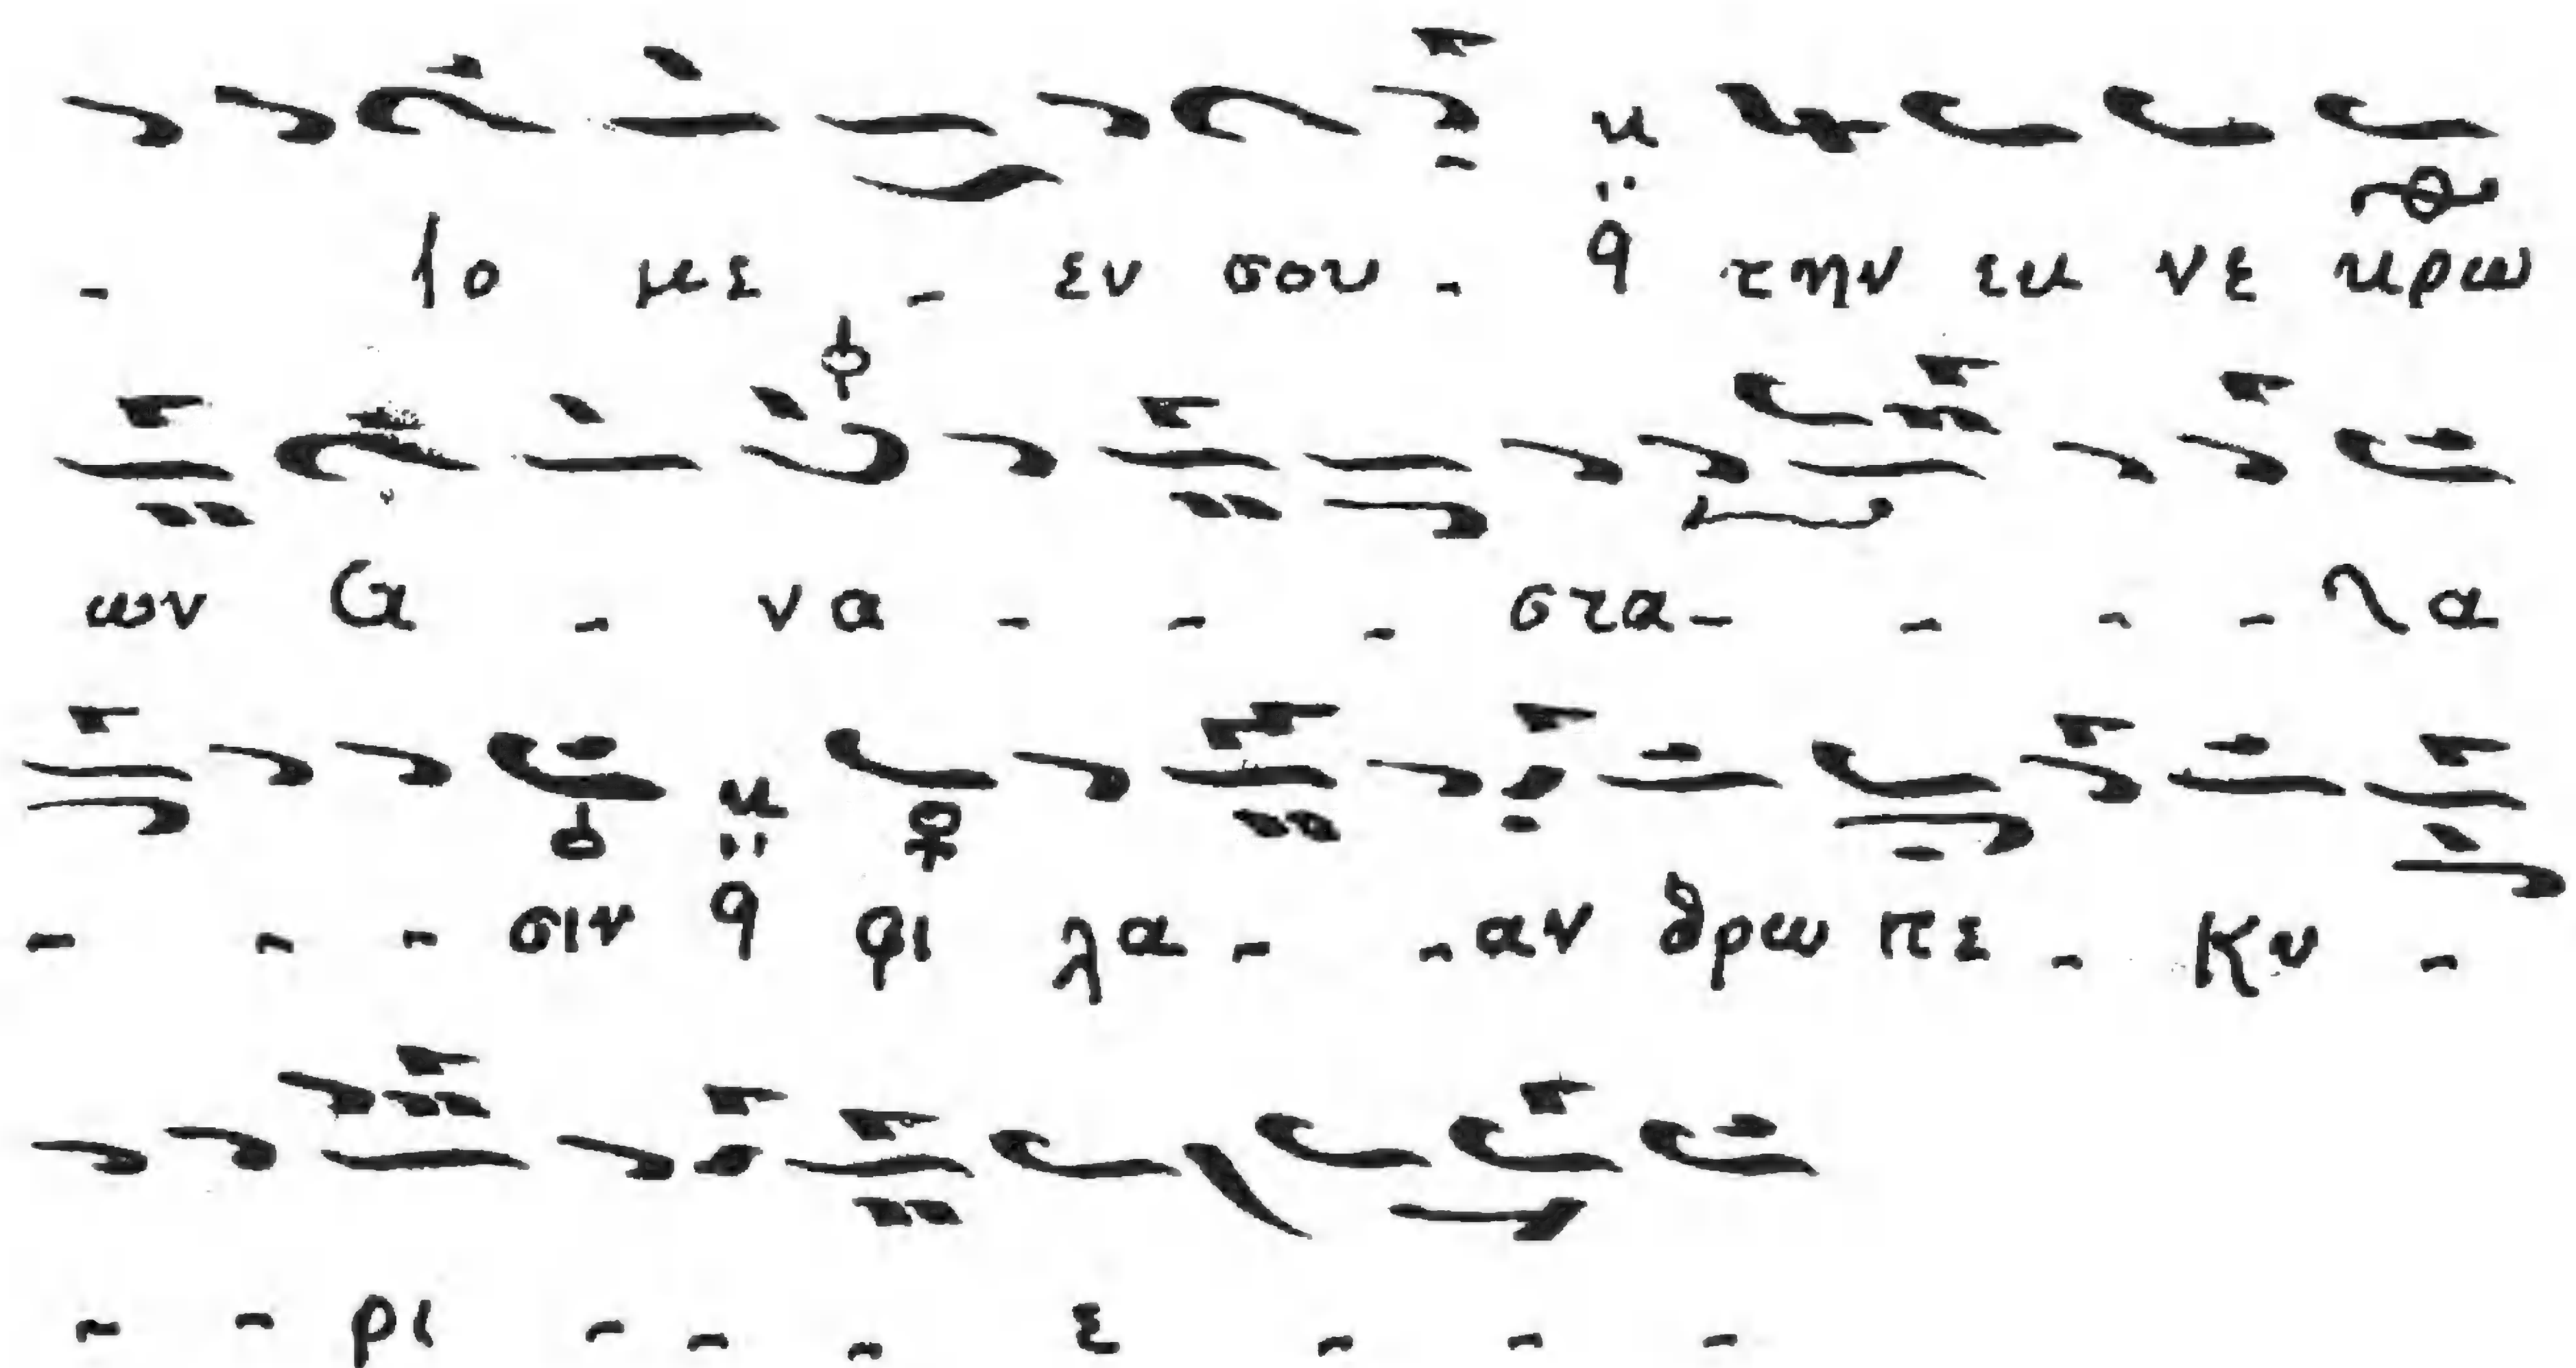 - ſο με - εν σου - q την εκ νε κρω
ων Α - να - - - στα - - - - λα
- - - σιν q φι λα - - αν θρω πε - Κυ -
- - ρι - - - ε - - -